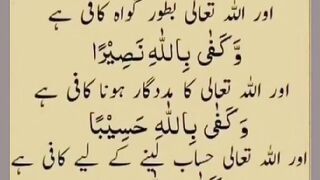 اور اللہ تعالیٰ بطور گواہ کافی ہے
وَّكَفٰى بِاللّٰهِ نَصِيْرًا
اور اللہ تعالیٰ کا مددگار ہونا کافی ہے
وَكَفٰى بِاللّٰهِ حَسِيْبًا
اور اللہ تعالیٰ حساب لینے کے لیے کافی ہے